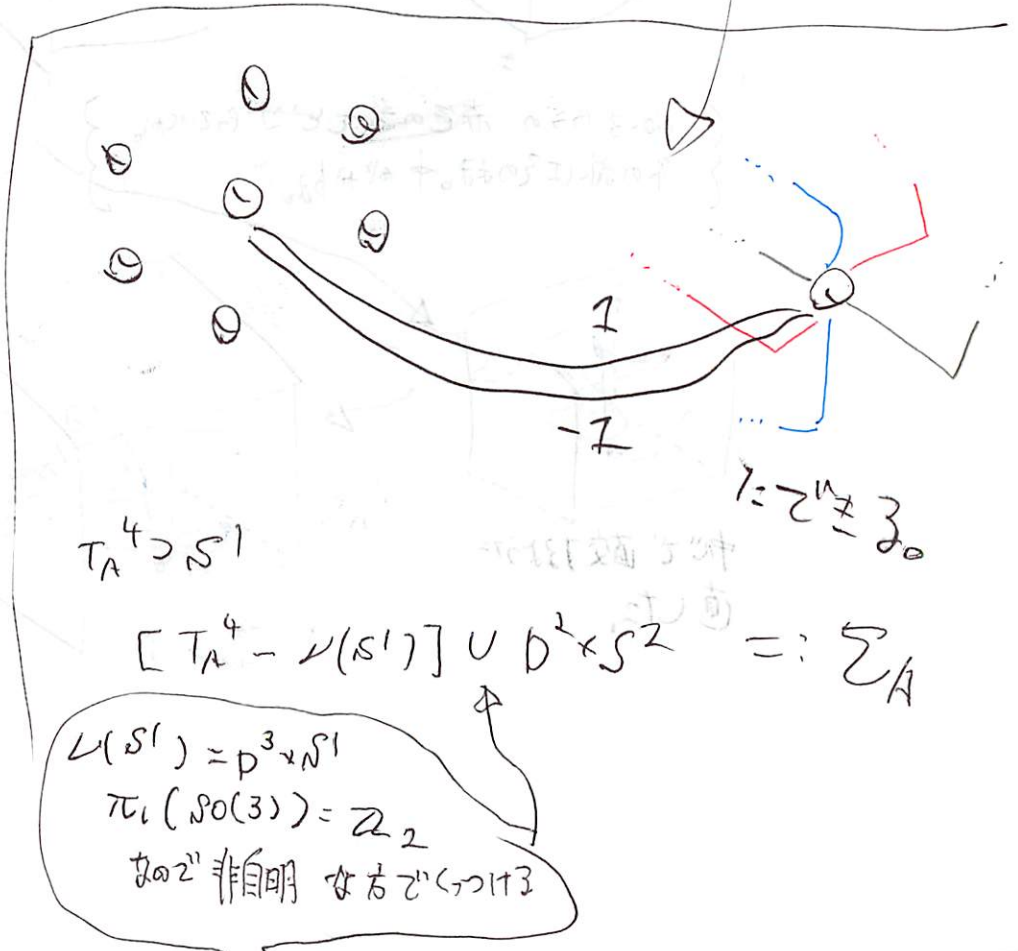 1
-1
たできる。
T_A^4 ⊃ S^1
[T_A^4 - ν(S^1)] ∪ D^2×S^2 =: Σ_A
ν(S^1) = D^3×S^1
π_1(SO(3)) = Z_2
なので非自明な方でくっつける